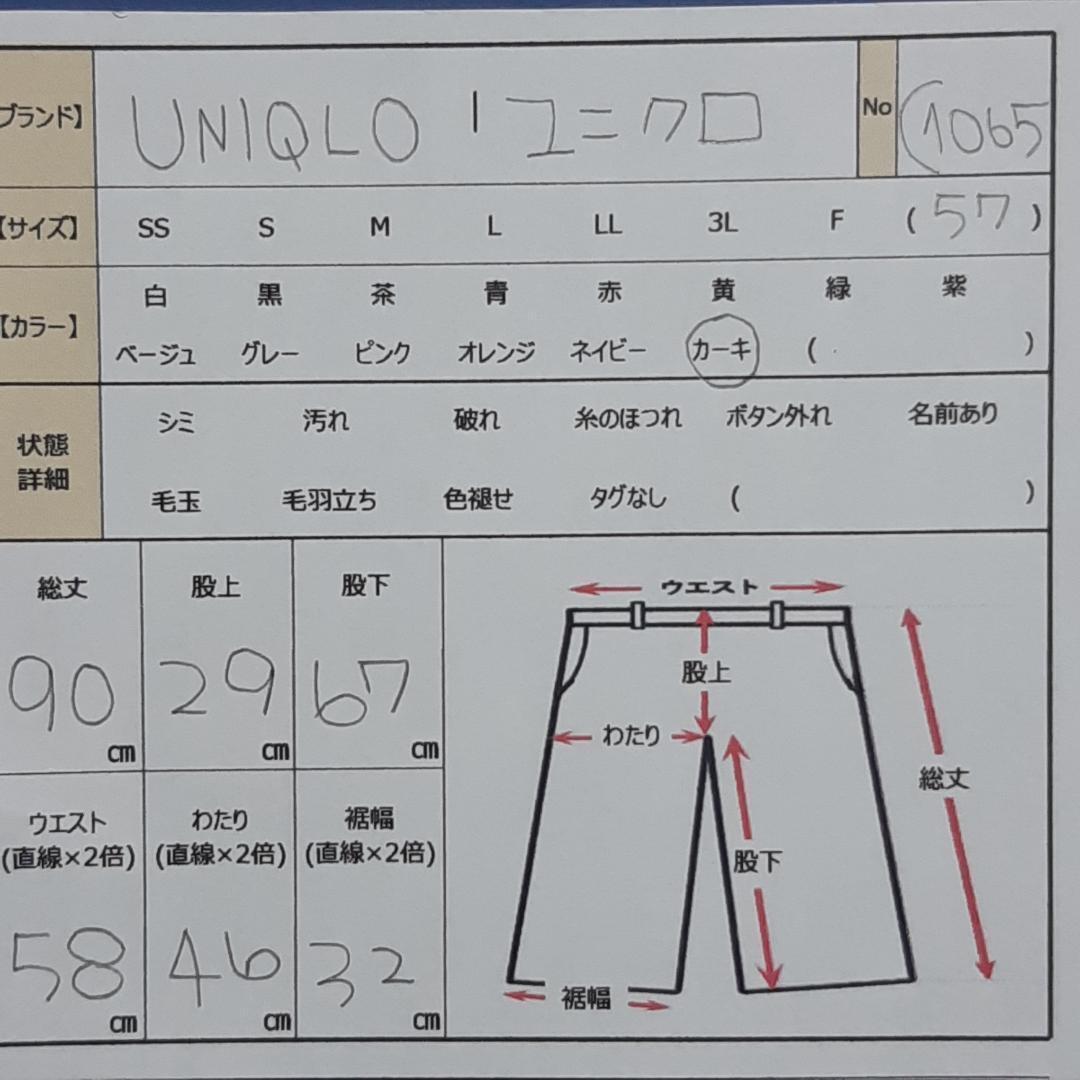 ブランド】 UNIQLO | ユニクロ No (1065
【サイズ】 SS S M L LL 3L F (57)
【カラー】
白 黒 茶 青 赤 黄 緑 紫
ベージュ グレー ピンク オレンジ ネイビー カーキ ( )
状態
詳細
シミ 汚れ 破れ 糸のほつれ ボタン外れ 名前あり
毛玉 毛羽立ち 色褪せ タグなし ( )
総丈 股上 股下
90cm 29cm 67cm
ウエスト わたり 裾幅
(直線×2倍) (直線×2倍) (直線×2倍)
58cm 46cm 32cm
ウエスト
股上
わたり
総丈
股下
裾幅